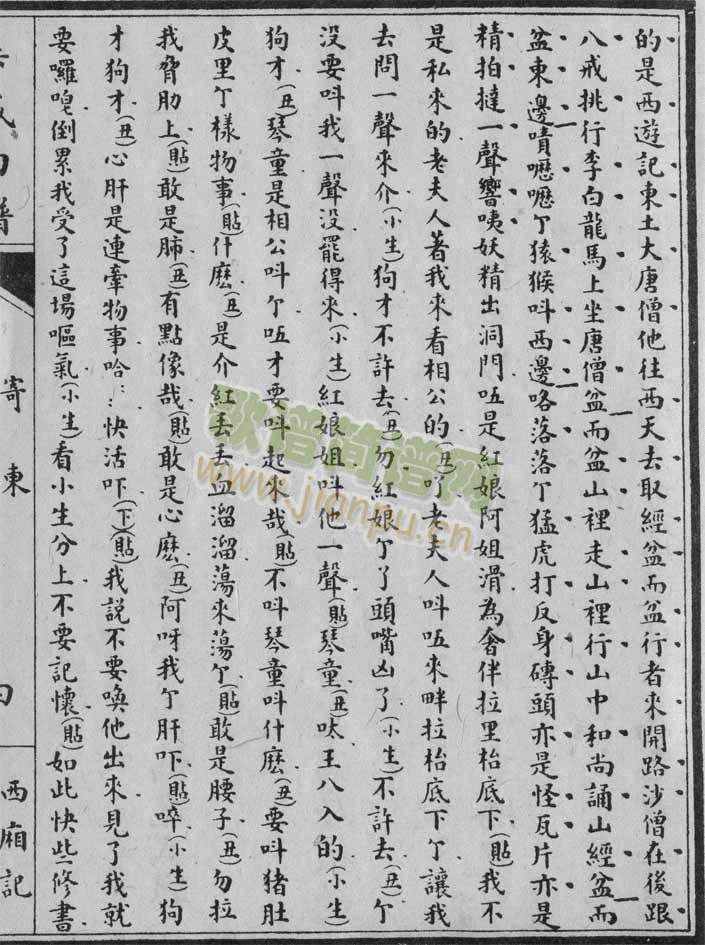 的是西遊記東土大唐僧他往西天去取經盆而盆行者來開路沙僧在後跟
八戒挑行李白龍馬上坐唐僧盆而盆山裡走山裡行山中和尚誦山經盆而
盆東邊嘖嚦嚦丫猿猴呌西邊咯落落丫猛虎打反身磚頭亦是怪瓦片亦是
精拍撻一聲響咦妖精出洞門㕶是紅娘阿姐滑為奢伴拉里枱底下(貼)我不
是私來的老夫人著我來看相公的(丑)吖老夫人呌㕶來畔拉枱底下丫讓我
去問一聲來介(小生)狗才不許去(丑)勿紅娘丫了頭嘴凶了(小生)不許去(丑)丫
没要呌我一聲没罷得來(小生)紅娘姐呌他一聲(貼)琴童(丑)呔王八入的(小生)
狗才(丑)琴童是相公呌丫㕶才要呌起來哉(貼)不呌琴童呌什麽(丑)要呌猪肚
皮里丫樣物事(貼)什麽(丑)是介紅丢丢血溜溜蕩來蕩丫(貼)敢是腰子(丑)勿拉
我脅肋上(貼)敢是肺(丑)有點像哉(貼)敢是心麽(丑)阿呀我丫肝吓(貼)啐(小生)狗
才狗才(丑)心肝是連牽物事哈：：快活吓(下)(貼)我説不要喚他出來見了我就
要囉唣倒累我受了這場嘔氣(小生)看小生分上不要記懷(貼)如此快些修書
寄柬
西廂記
歌谱简谱网
www.jianpu.cn